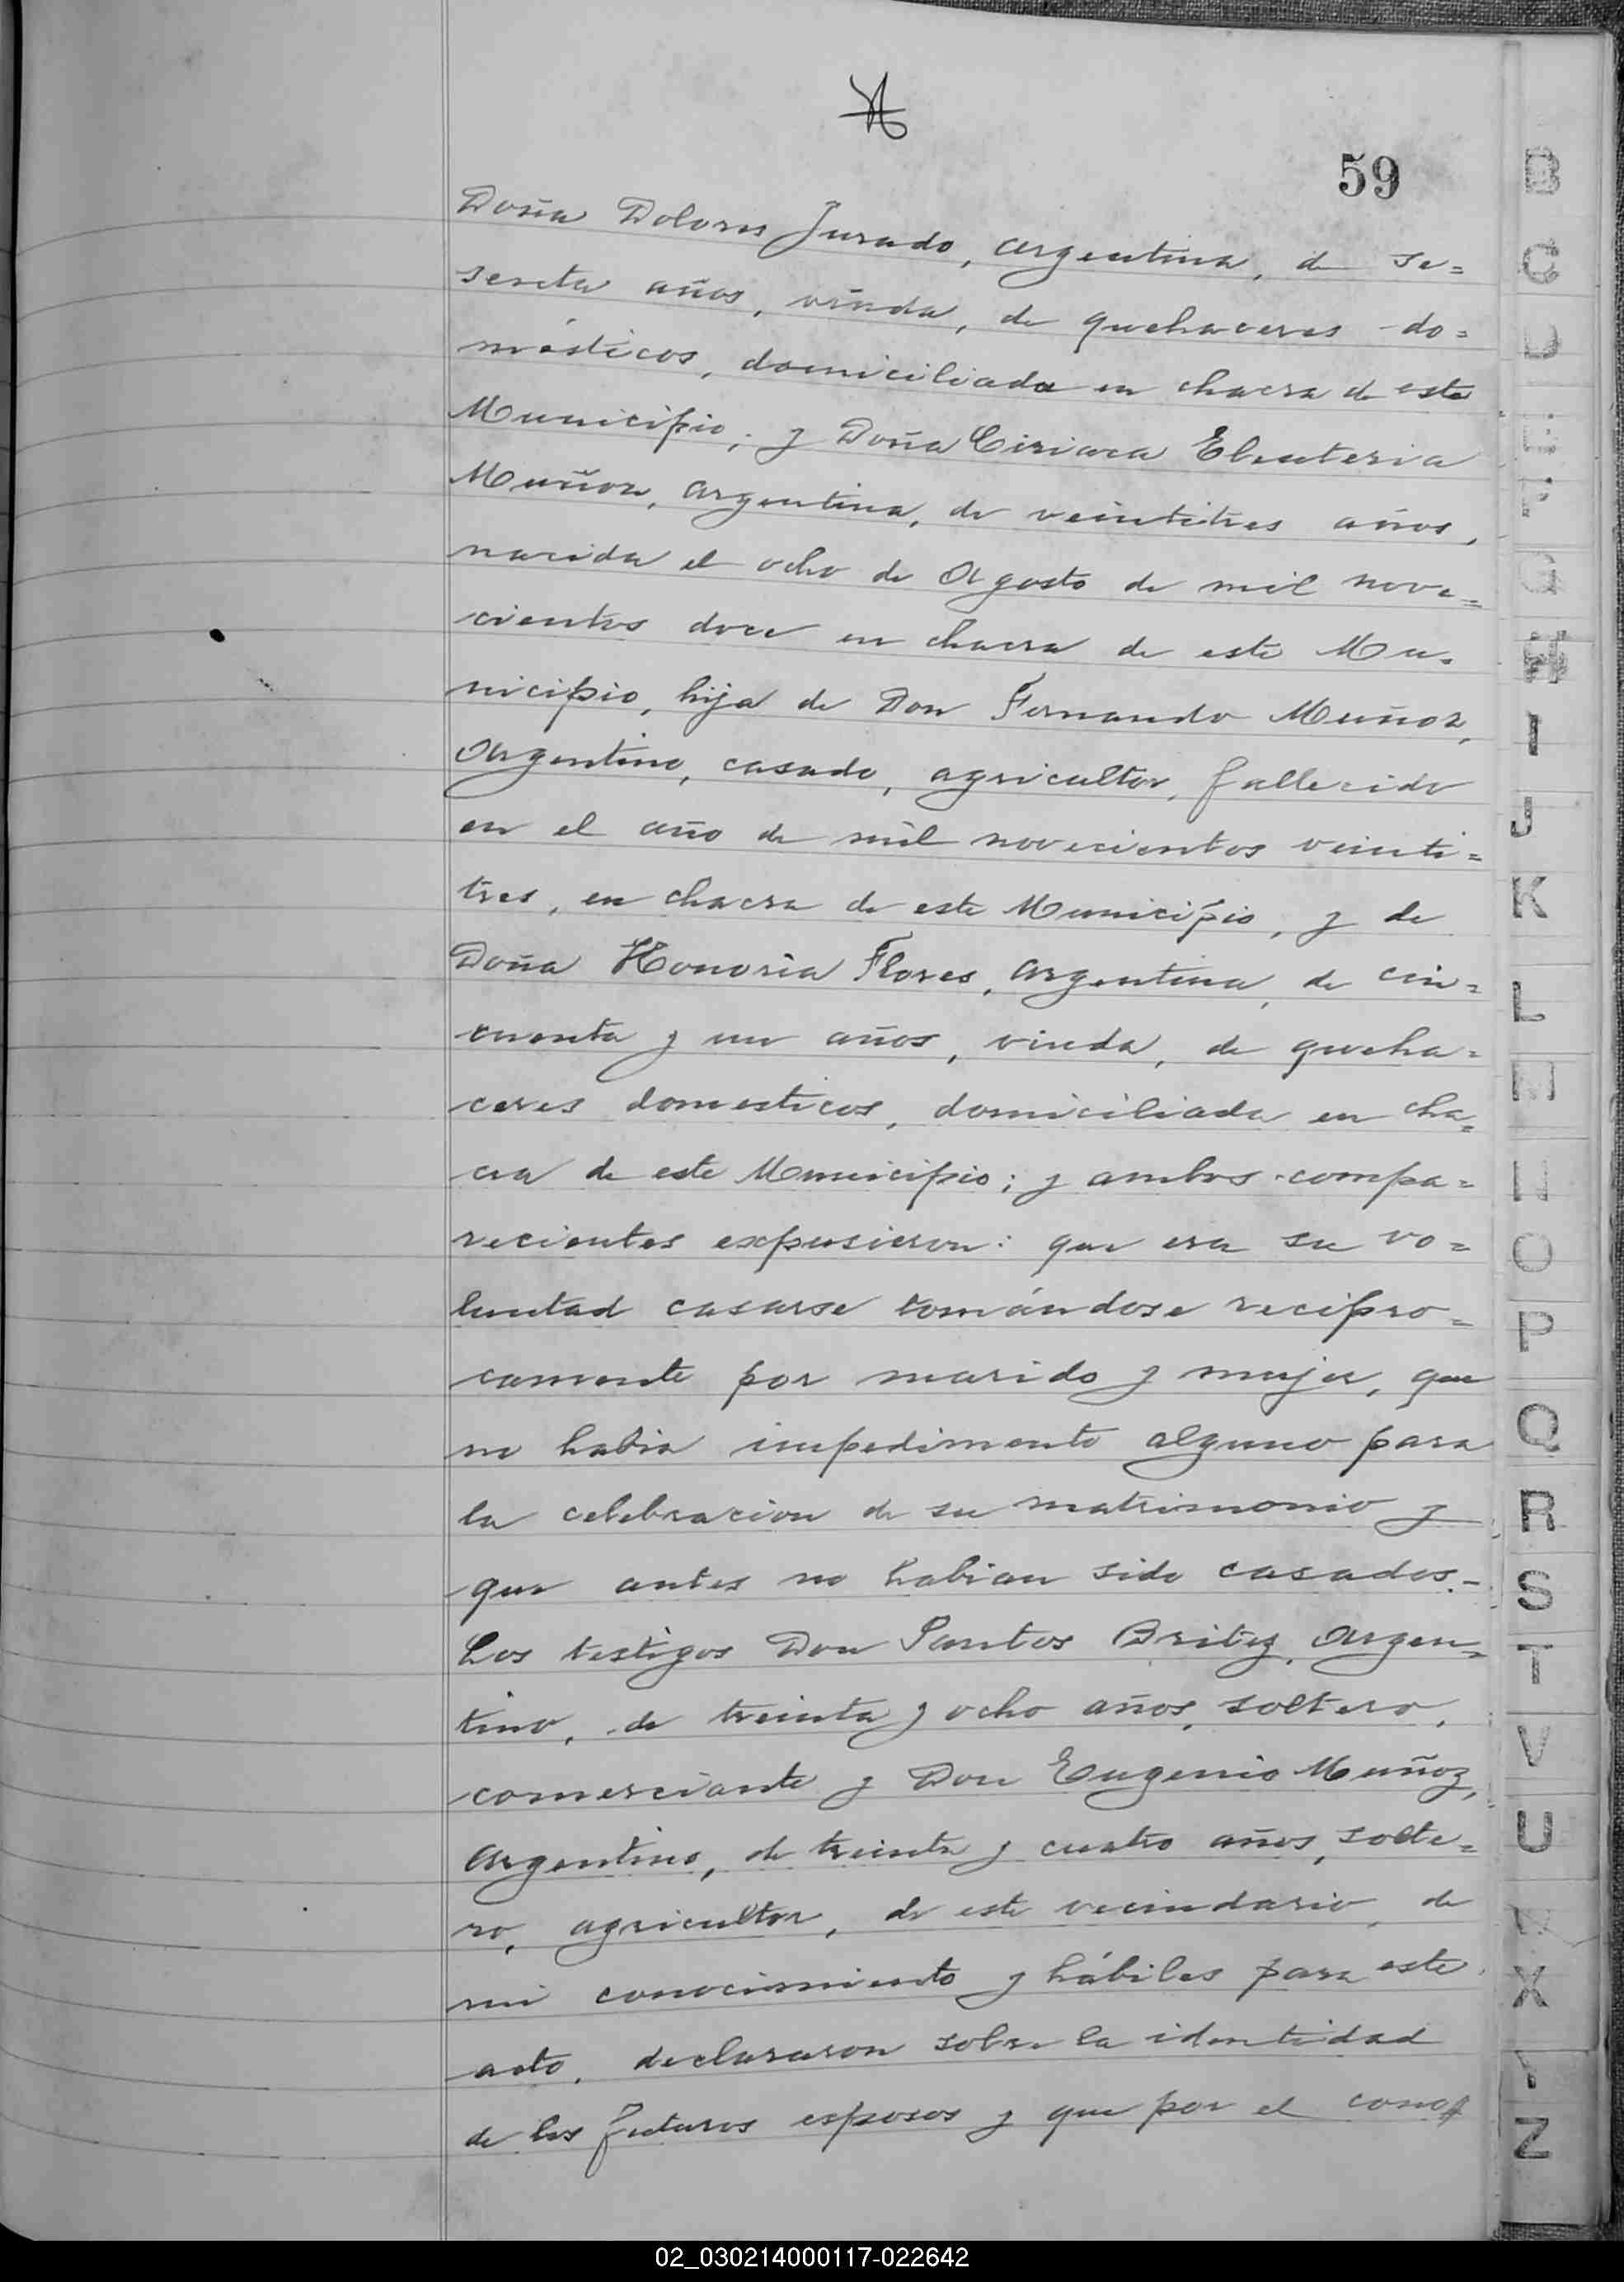 59
Doña Dolores Jurado, argentina, de se=
senta años, viuda, de quehaceres do=
mésticos, domiciliada en chacra de este
Municipio; y Doña Ciriaca Eleuteria
Muñoz, argentina, de veintitres años,
nacida el ocho de Agosto de mil nove=
cientos doce en chacra de este Mu=
nicipio, hija de Don Fernando Muñoz,
Argentino, casado, agricultor, fallecido
en el año de mil novecientos veinti=
tres, en chacra de este Municipio, y de
Doña Honoria Flores, argentina, de cin=
cuenta y un años, viuda, de queha=
ceres domesticos, domiciliada en cha=
cra de este Municipio; y ambos compa=
recientes expusieron: que era su vo=
luntad casarse tomándose recipro=
camente por marido y mujer, que
no habia impedimento alguno para
la celebracion de su matrimonio y
que antes no habian sido casados.-
Los testigos Don Santos Britez, Argen=
tino, de treinta y ocho años, soltero,
comerciante y Don Eugenio Muñoz,
Argentino, de treinta y cuatro años, solte=
ro, agricultor, de este vecindario, de
mi conocimiento y hábiles para este
acto, declararon sobre la identidad
de los futuros esposos y que por el cono
B
C
D
E
F
G
H
I
J
K
L
M
N
O
P
Q
R
S
T
V
U
X
Y
Z
02_030214000117-022642